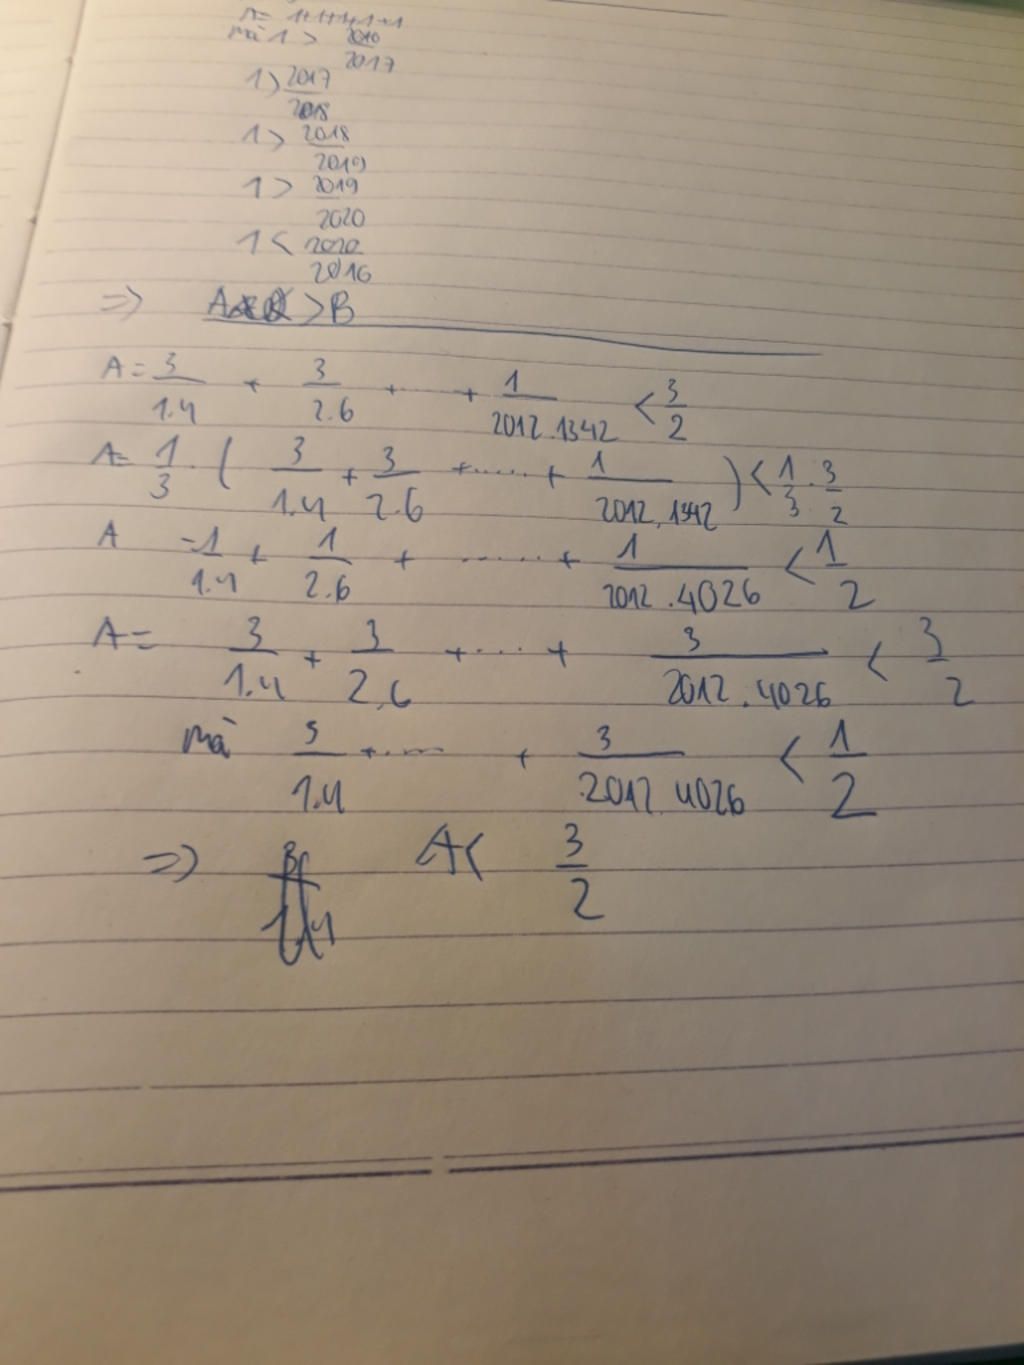 A= 1+1+1+1+1
mà 1 > 2016/2017
1 > 2017/2018
1 > 2018/2019
1 > 2019/2020
1 < 2020/2016
=> A > B
A = 3/1.4 + 3/2.6 + ..... + 1/2012.1342 < 3/2
A= 1/3 . ( 3/1.4 + 3/2.6 + ..... + 1/2012.1342 ) < 1/3 . 3/2
A = 1/1.4 + 1/2.6 + ...... + 1/2012.4026 < 1/2
A = 3/1.4 + 3/2.6 + .... + 3/2012.4026 < 3/2
mà 3/1.4 + .... + 3/2012.4026 < 1/2
=> A < 3/2